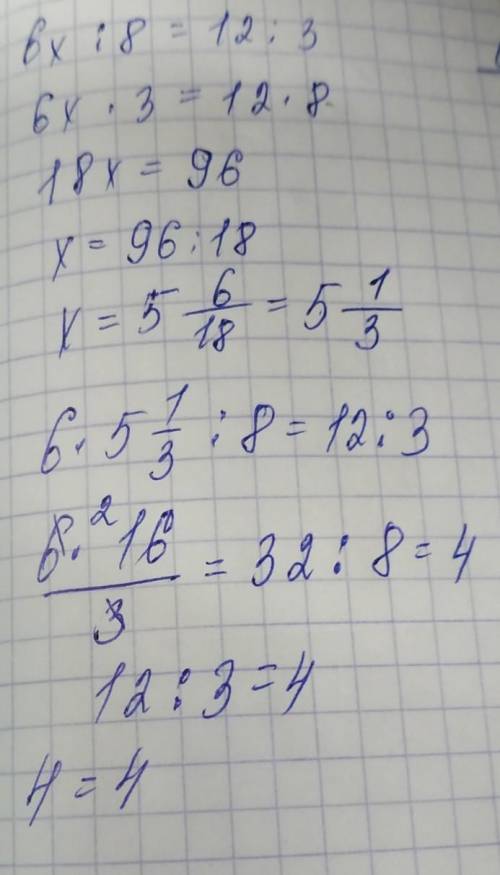 6x : 8 = 12 : 3
6x · 3 = 12 · 8
18x = 96
x = 96 : 18
x = 5 6/18 = 5 1/3
6 · 5 1/3 : 8 = 12 : 3
6 · ² 16 / 3 = 32 : 8 = 4
12 : 3 = 4
4 = 4